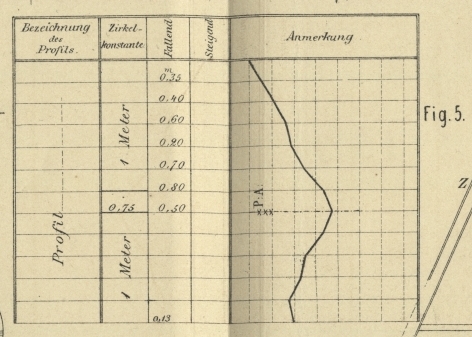 Bezeichnung
des
Profils.
Zirkel-
konstante
Fallend
Steigend
Anmerkung.
Profil
1 Meter
0.75
1 Meter
m
0.35
0.40
0.60
0.20
0.70
0.80
0.50
0,13
P.A.
xxx
Fig. 5.
Z